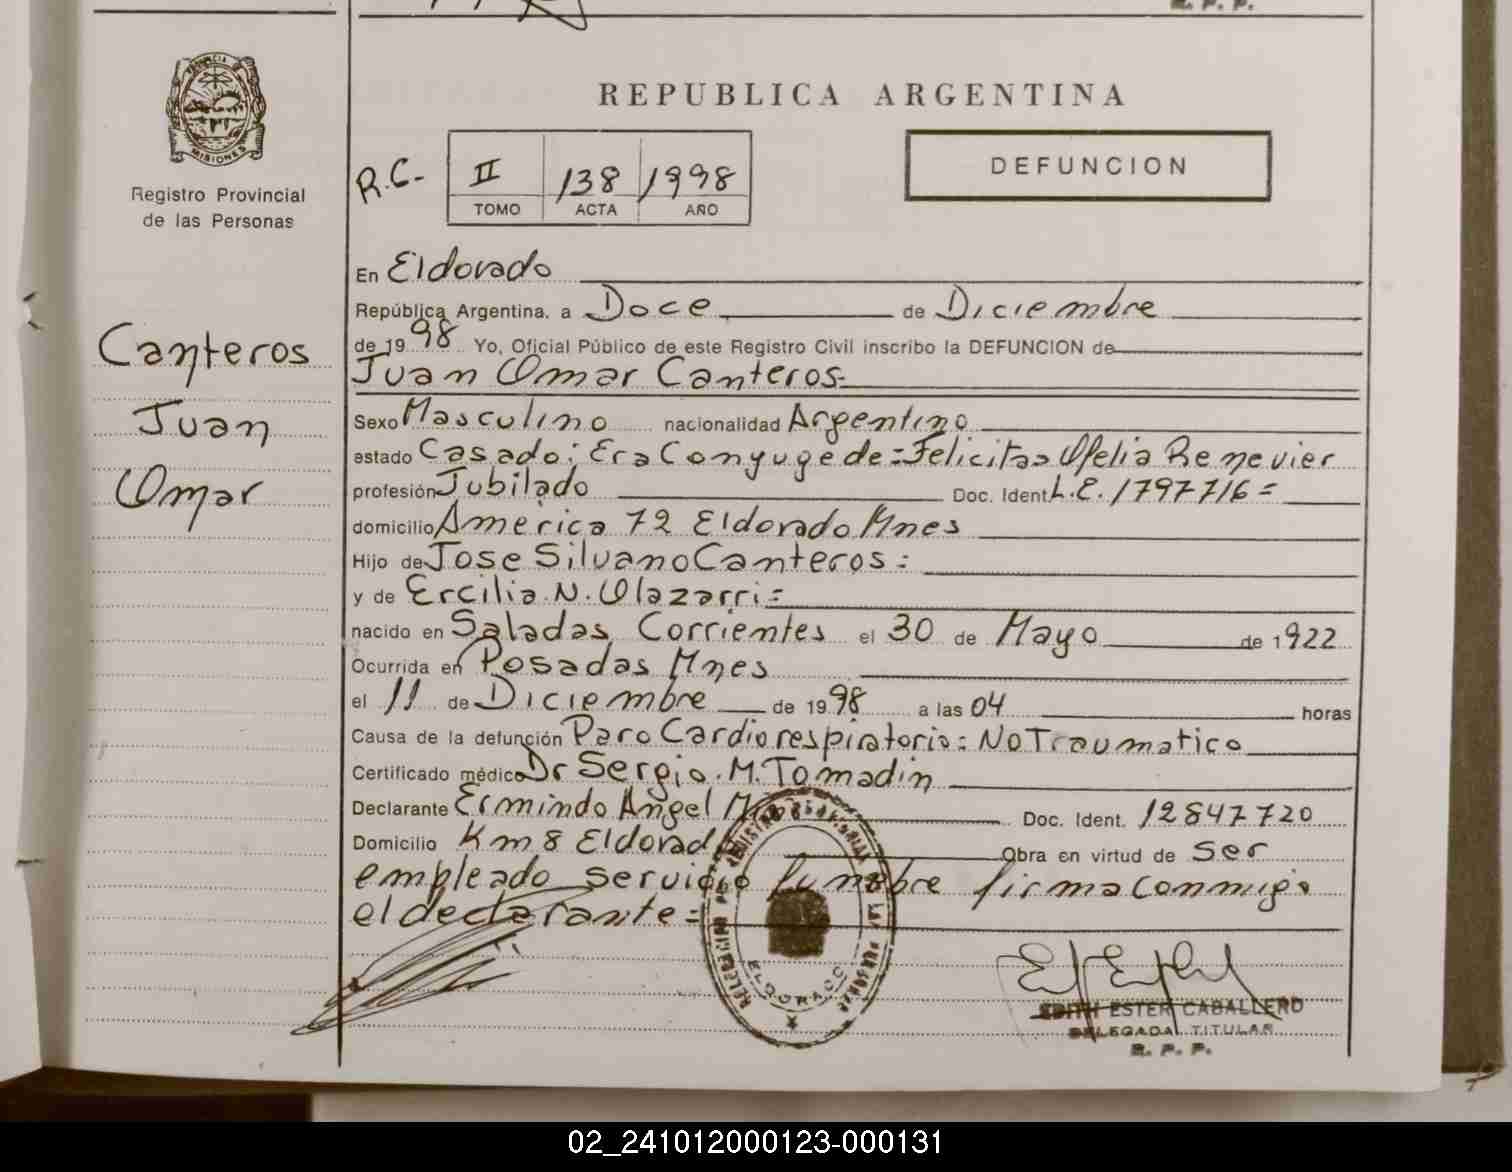 R. P. P.
REPUBLICA ARGENTINA
PROVINCIA DE
MISIONES
Registro Provincial
de las Personas
R.C. II 138 1998
TOMO ACTA AÑO
DEFUNCION
Canteros
Juan
Omar
En Eldorado
República Argentina, a Doce de Diciembre
de 1998 Yo, Oficial Público de este Registro Civil inscribo la DEFUNCION de
Juan Omar Canteros.
Sexo Masculino nacionalidad Argentino
estado Casado: Era Conyuge de = Felicitas Ofelia Renevier
profesión Jubilado Doc. Ident L.E. 1797716=
domicilio America 72 Eldorado Mnes
Hijo de Jose Silvano Canteros =
y de Ercilia N. Olazarri=
nacido en Saladas Corrientes el 30 de Mayo de 1922
Ocurrida en Posadas Mnes
el 11 de Diciembre de 1998 a las 04 horas
Causa de la defunción Paro Cardiorespiratorio: No Traumatico
Certificado médico Dr Sergio. M. Tomadin
Declarante Ermindo Angel Doc. Ident. 12847720
Domicilio Km 8 Eldorado Obra en virtud de ser
empleado servicio funebre firma conmigo
el declarante=
DELEGACION DEL REGISTRO PROVINCIAL DE LAS PERSONAS
ELDORADO
EDITH ESTER CABALLERO
DELEGADA TITULAR
R. P. P.
02_241012000123-000131